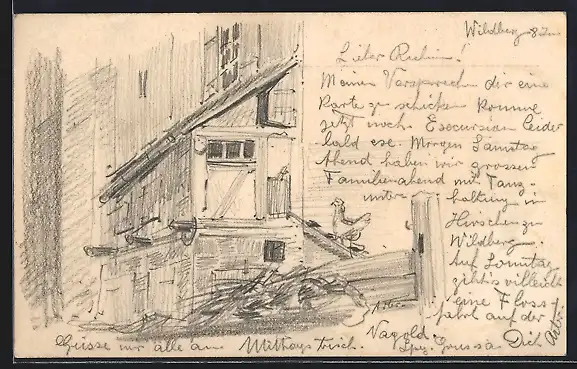 Wildberg 8 Jun
Lieber Rechim!
Meinem Versprechen dir eine
Karte zu schicken komme
jetzt nach. Excursion leider
bald exc. Morgen Samstag
Abend haben wir grossen
Familienabend mit Tanz-
unter haltung im
Hirschen zu
Wildberg.
Auf Sonntag
gibts villeicht
eine Floss-
fahrt auf der
Nagold.
Spez. Gruss a Dich
Grüsse mir alle am Mittagstisch.